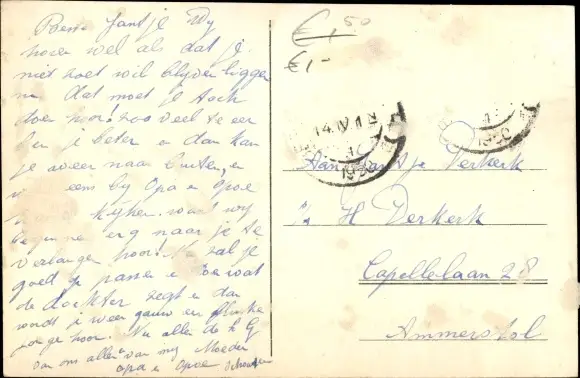 Jantje Wy
horen wel als dat je
niet zoet wil blyven liggen
dat moet je toch
doen hoor! zoo veel te eer
ben je beter en dan kan
je weer naar buiten, en
eens by Opa en Opoe
kyken. want wy
beginnen erg naar je te
verlangen hoor! Nu zal je
goed op passen en wat
de dockter zegt en dan
wordt je weer gauw een flinke
jonge hoor. Nu allen de h G
van ons allen van my Moeder
opa en opoe
€1,50
€1,-
14 IV
Aan Jantje Verkerk
H Verkerk
Capellelaan 28
Ammerstol